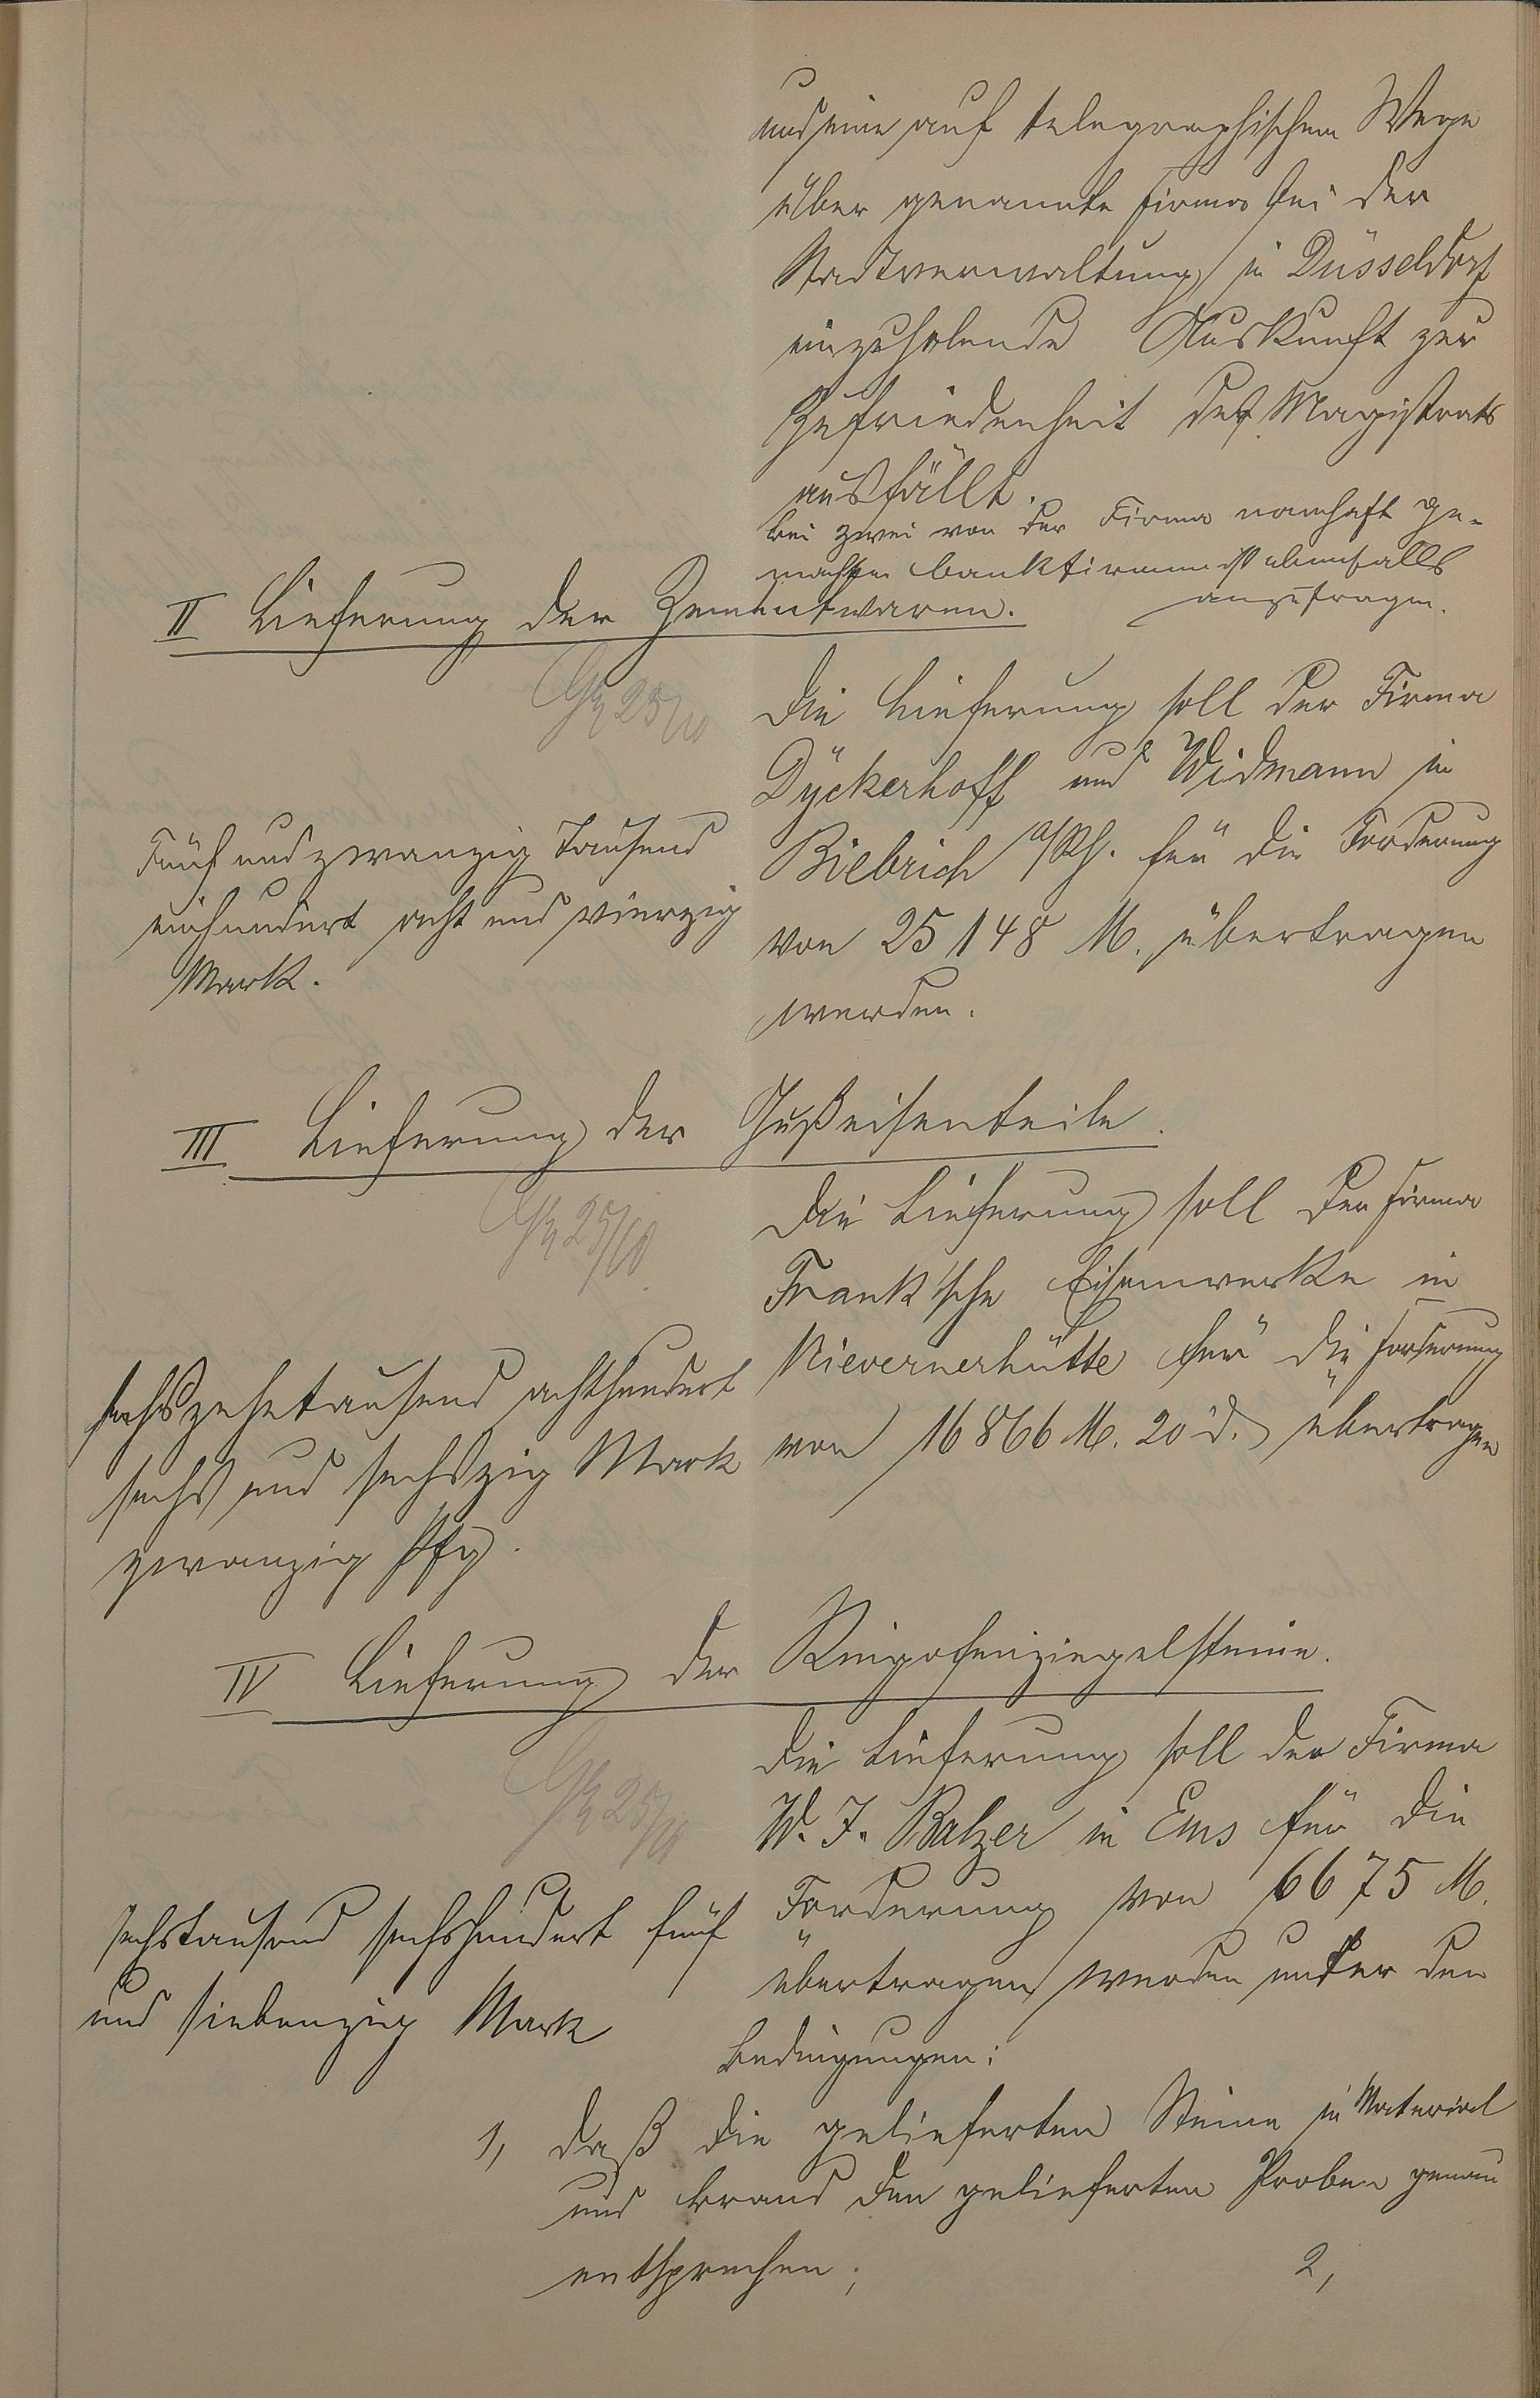 und eine auf telegraphischem Wege
über genannte Firma bei der
Stadtverwaltung in Düsseldorf
einzuholende Auskunft zur
Zufriedenheit des Magistrats
ausfällt.
bei zwei von der Firma namhaft ge-
machten Bankfirmen ist ebenfalls
anzufragen.
II Lieferung der Zementwaren.
25/10
Die Lieferung soll der Firma
Dyckerhoff und Widmann in
Biebrich a/Rh. für die Forderung
von 25 148 M. übertragen
werden.
Fünf und zwanzig Tausend
einhundert acht und vierzig
Mark.
III Lieferung der Gußeisenteile.
25/10
Die Lieferung soll der Firma
Frank'sche Eisenwerke in
Nievernerhütte für die Forderung
von 16 866 M. 20 d. übertragen
sechszehntausend achthundert
sechs und sechszig Mark
zwanzig Pfg.
IV Lieferung der Ringofenziegelsteine.
25/10
Die Lieferung soll der Firma
W. J. Balzer in Ems für die
Forderung von 6675 M.
übertragen werden unter den
Bedingungen:
sechstausend sechshundert fünf
und siebenzig Mark
1, daß die gelieferten Steine in Material
und Brand den gelieferten Proben genau
entsprechen;
2,